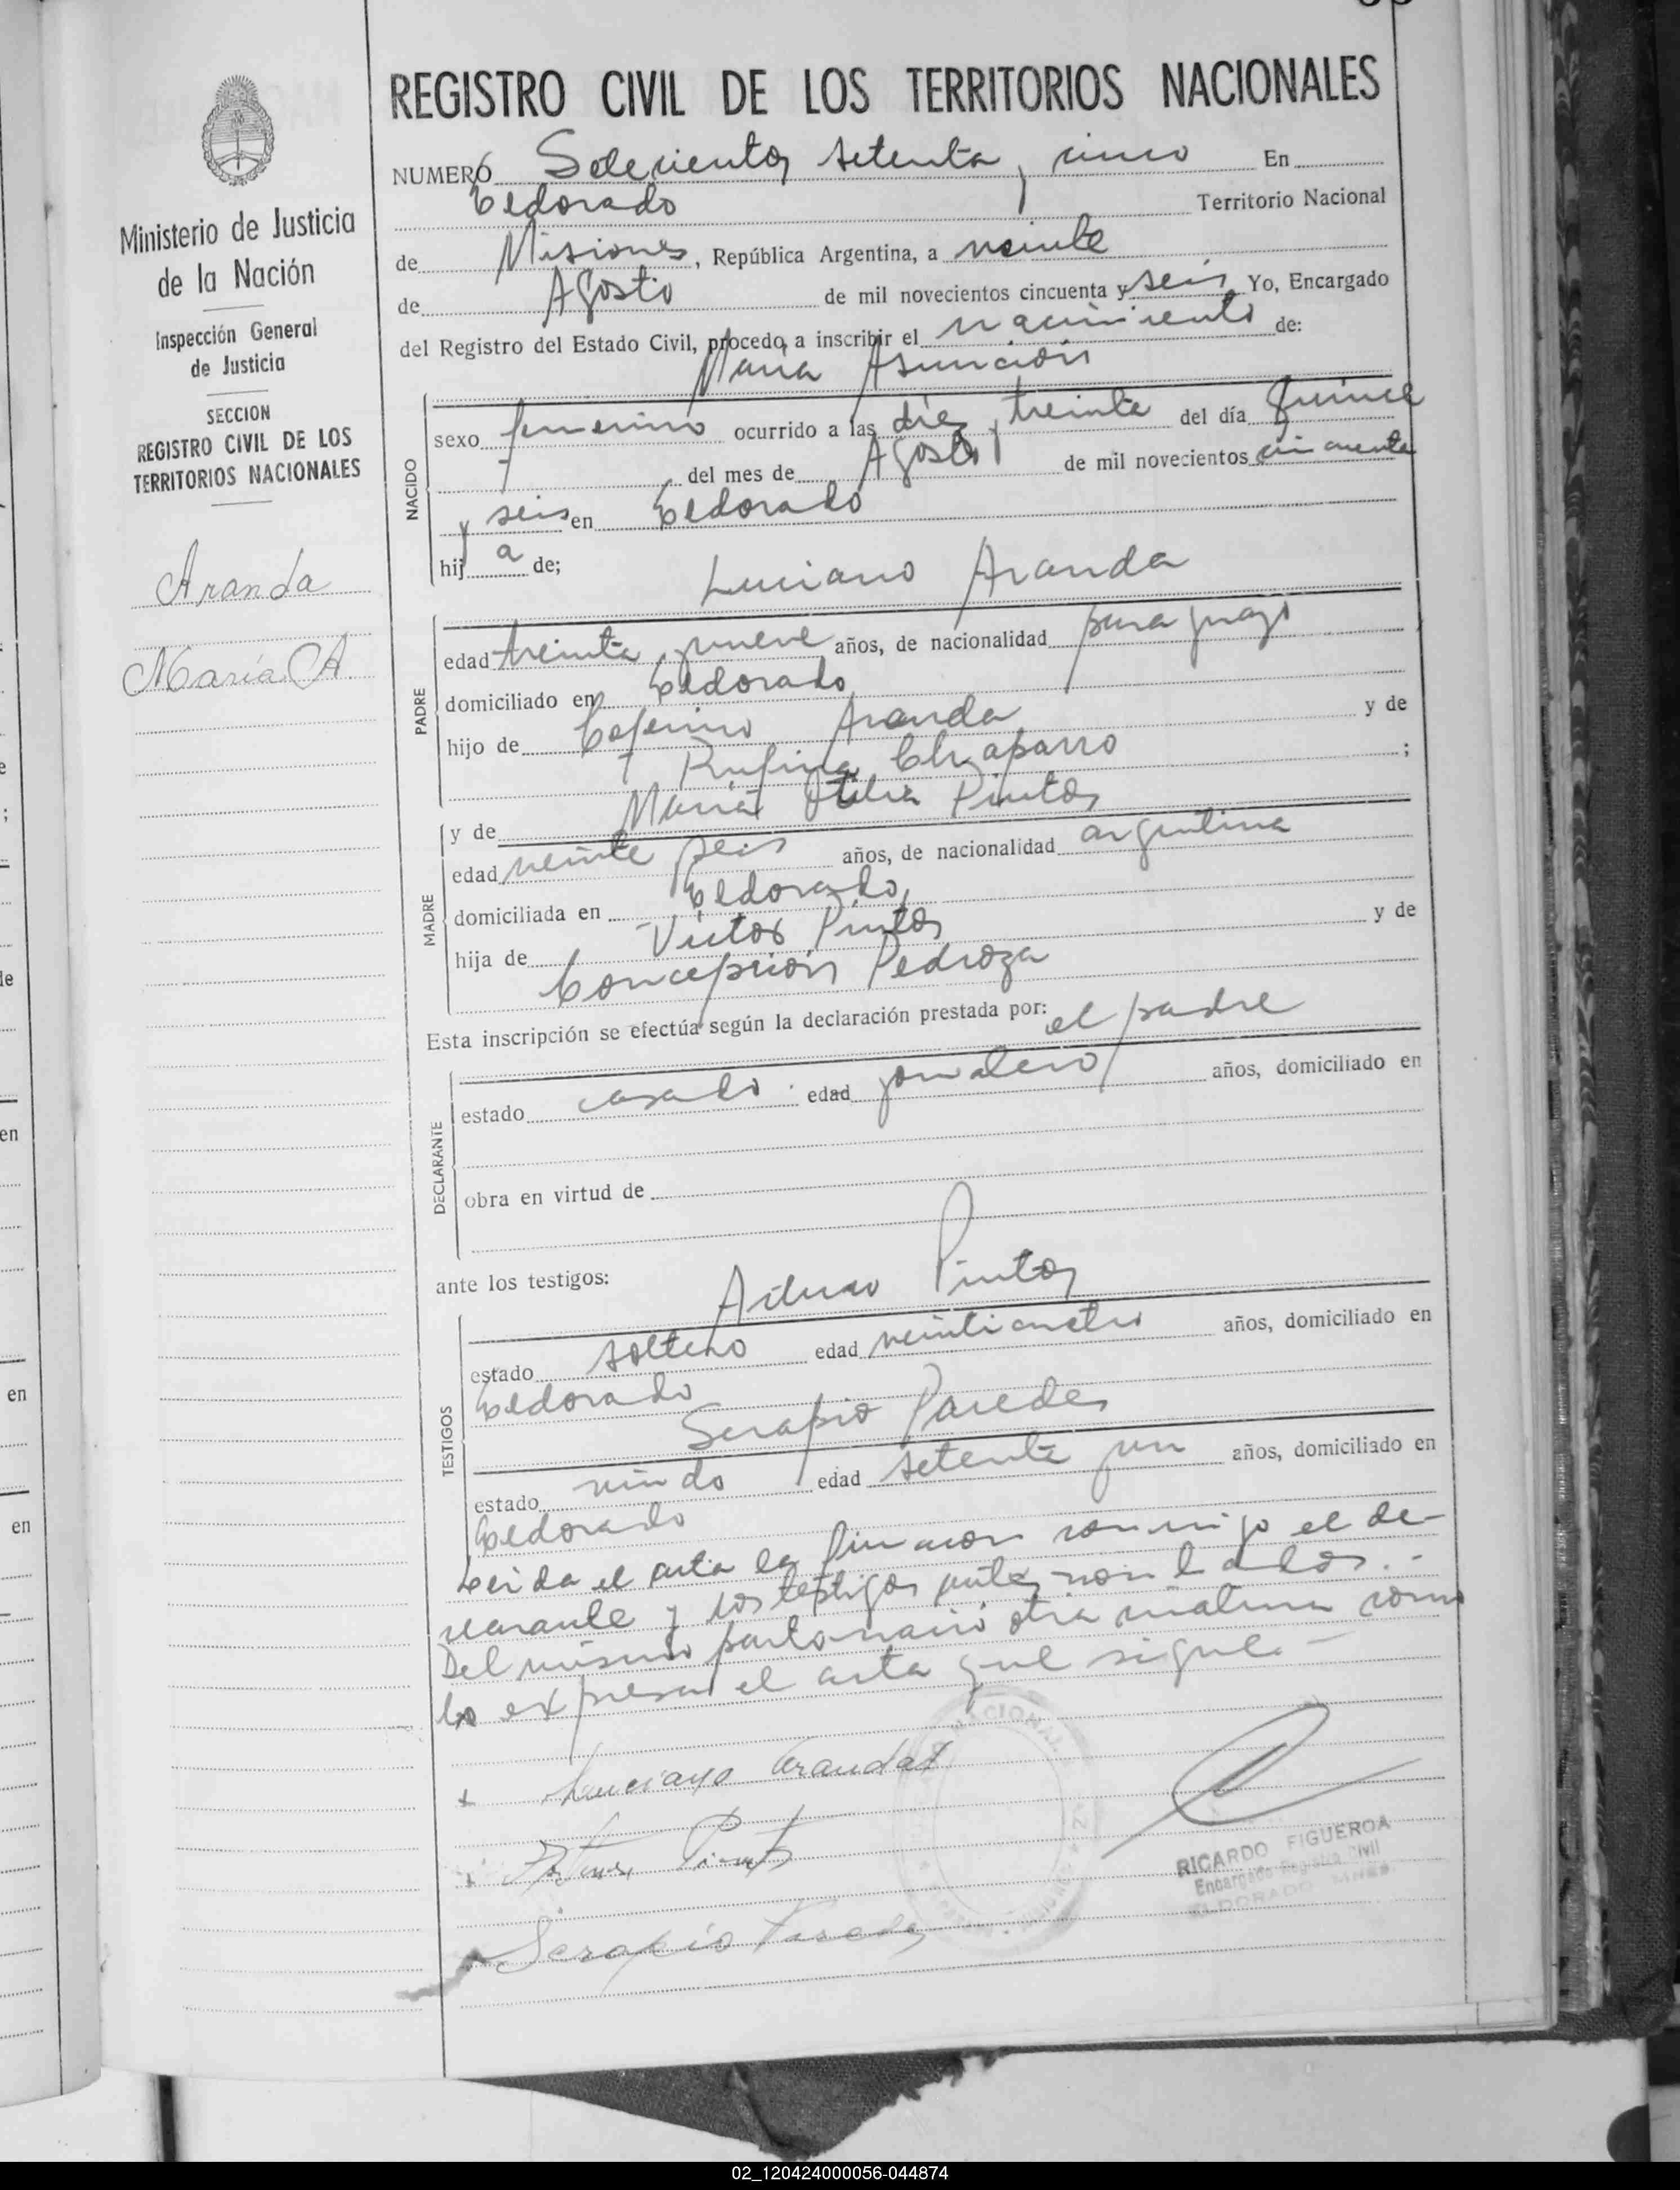 REGISTRO CIVIL DE LOS TERRITORIOS NACIONALES
Ministerio de Justicia
de la Nación
Inspección General
de Justicia
SECCION
REGISTRO CIVIL DE LOS
TERRITORIOS NACIONALES
Aranda
María A.
NUMERO Setecientos setenta y cinco En
Eldorado Territorio Nacional
de Misiones, República Argentina, a veinte
de Agosto de mil novecientos cincuenta y seis Yo, Encargado
del Registro del Estado Civil, procedo a inscribir el nacimiento de:
María Asunción
NACIDO
sexo femenino ocurrido a las diez y treinta del día quince
del mes de Agosto de mil novecientos cincuenta
y seis en Eldorado
hij a de; Luciano Aranda
PADRE
edad treinta y nueve años, de nacionalidad paraguayo
domiciliado en Eldorado
hijo de Ceferino Aranda y de
Rufina Chaparro ;
y de María Otilia Pintos
MADRE
edad veinte y seis años, de nacionalidad argentina
domiciliada en Eldorado,
hija de Victor Pintos y de
Concepción Pedroza
Esta inscripción se efectúa según la declaración prestada por: el padre
DECLARANTE
estado casado edad jornalero años, domiciliado en
obra en virtud de
ante los testigos: Arturo Pintos
TESTIGOS
estado soltero edad veinticuatro años, domiciliado en
Eldorado
Serapio Paredes
estado viudo edad setenta y un años, domiciliado en
Eldorado
Leida el acta la firmaron conmigo el de-
clarante y los testigos antes nombrados.-
Del mismo parto nació otra melliza como
lo expresa el acta que sigue.-
Luciano Aranda
Arturo Pintos
Serapio Paredes
NACIONAL
RICARDO FIGUEROA
Encargado Registro Civil
ELDORADO MNES.
02_120424000056-044874